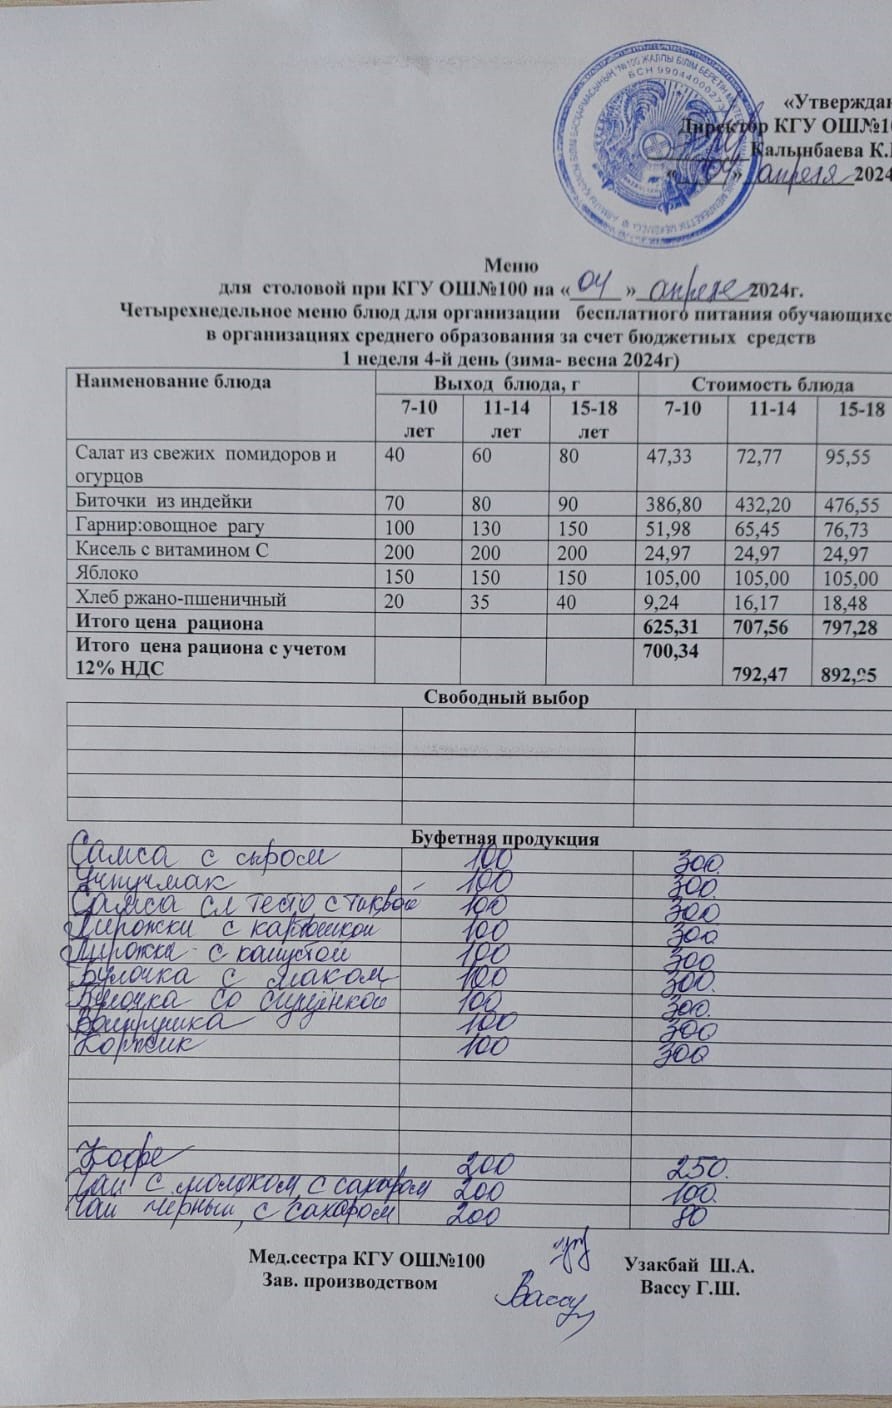 №100 ЖАЛПЫ БІЛІМ БЕРЕТІН
БСН 990440002
«Утверждаю
Директор КГУ ОШ№10
Калынбаева К.
« 04 » апреля 2024
Меню
для столовой при КГУ ОШ№100 на « 04 » апреля 2024г.
Четырехнедельное меню блюд для организации бесплатного питания обучающихс
в организациях среднего образования за счет бюджетных средств
1 неделя 4-й день (зима- весна 2024г)
Наименование блюда Выход блюда, г Стоимость блюда
7-10 лет 11-14 лет 15-18 лет 7-10 11-14 15-18
Салат из свежих помидоров и огурцов 40 60 80 47,33 72,77 95,55
Биточки из индейки 70 80 90 386,80 432,20 476,55
Гарнир:овощное рагу 100 130 150 51,98 65,45 76,73
Кисель с витамином С 200 200 200 24,97 24,97 24,97
Яблоко 150 150 150 105,00 105,00 105,00
Хлеб ржано-пшеничный 20 35 40 9,24 16,17 18,48
Итого цена рациона 625,31 707,56 797,28
Итого цена рациона с учетом 12% НДС 700,34 792,47 892,95
Свободный выбор
Буфетная продукция
Самса с сыром 100 300
Учпучмак 100 300
Самса сл тесто с тыквой 100 300
Пирожки с картошкой 100 300
Пирожки с капустой 100 300
Булочка с маком 100 300
Булочка со сгущенкой 100 300
Ватрушка 100 300
Коржик 100 300
Кофе 200 250
Чай с молоком, с сахаром 200 100
Чай черный, с сахаром 200 80
Мед.сестра КГУ ОШ№100 Узакбай Ш.А.
Зав. производством Вассу Вассу Г.Ш.